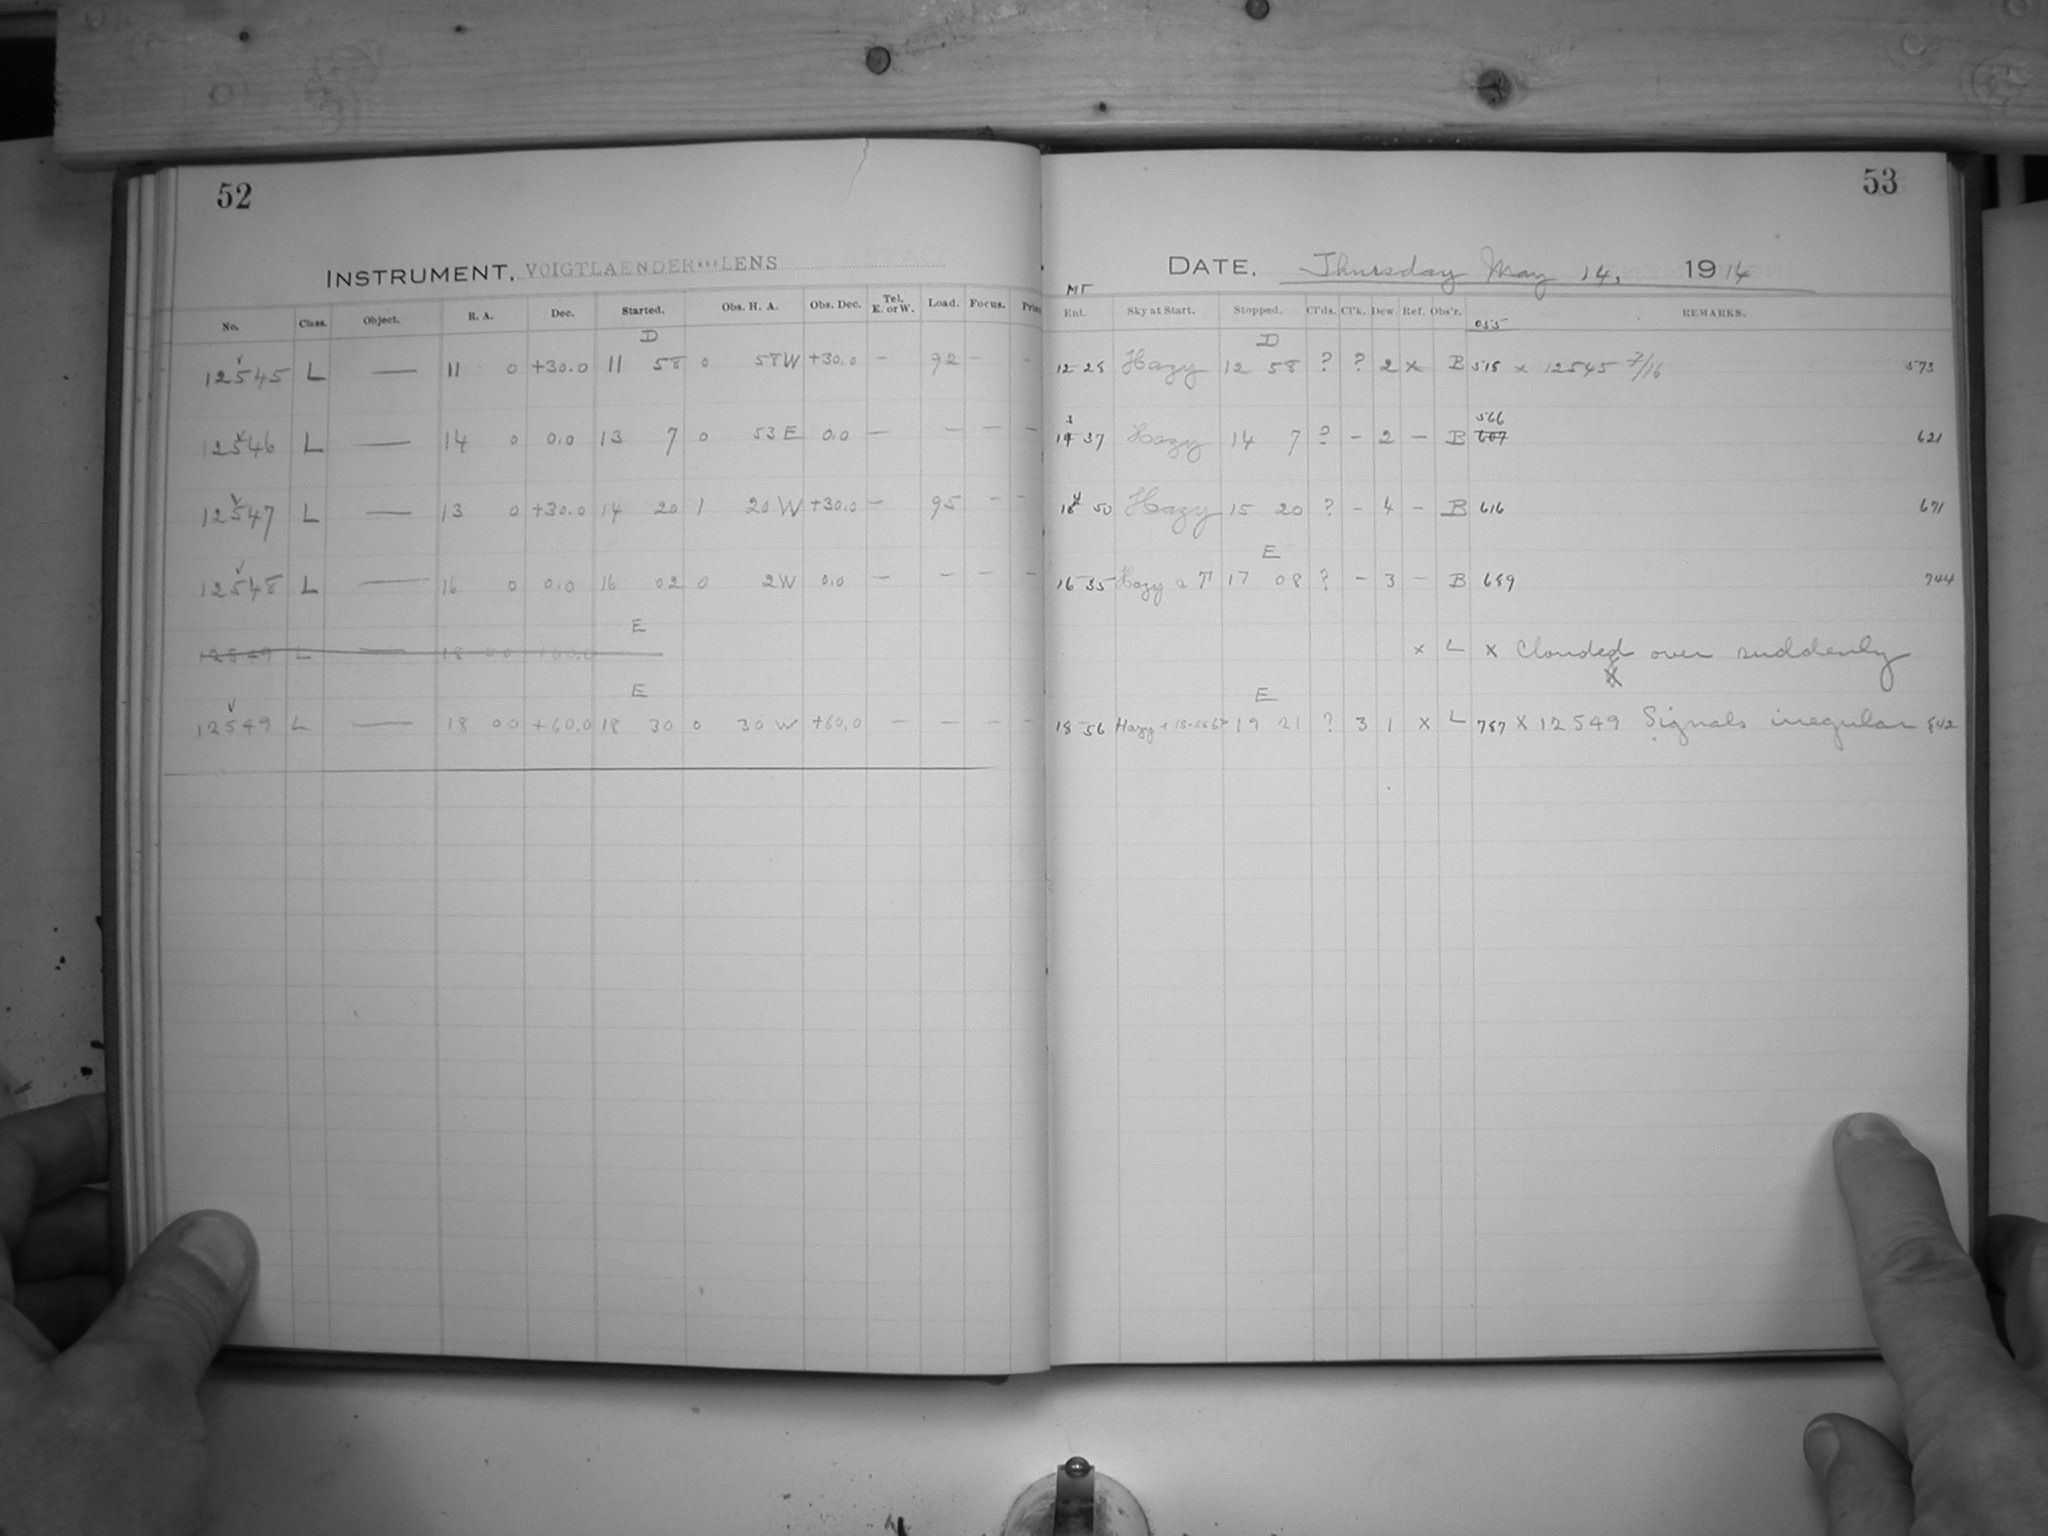 52
INSTRUMENT, VOIGTLAENDER···LENS
No. Class. Object. R. A. Dec. Started. Obs. H. A. Obs. Dec. Tel. E. or W. Load. Focus.
D
12545 L — 11 0 +30.0 11 58 0 58W +30.0 — 92 — —
12546 L — 14 0 0.0 13 7 0 53E 0.0 — — — —
12547 L — 13 0 +30.0 14 20 1 20W +30.0 — 95 — —
12548 L — 16 0 0.0 16 02 0 2W 0.0 — — — —
E
12549 L — 18 00 +60.0
E
12549 L — 18 00 +60.0 18 30 0 30W +60.0 — — — —
53
DATE, Thursday May 14, 1914
MT
Enl. Sky at Start. Stopped. Cl'ds. Cl'k. Dew. Ref. Obs'r. REMARKS.
055
D
12 28 Hazy 12 58 ? ? 2 x B 515 x 12545 7/16 573
566
37 Hazy 14 7 ? - 2 - B 607 621
50 Hazy 15 20 ? - 4 - B 616 671
E
16 35 Hazy 17 08 ? - 3 - B 689 744
x L x Clouded over suddenly
E
18 56 Hazy 19 21 ? 3 1 x L 787 x 12549 Signals irregular 842